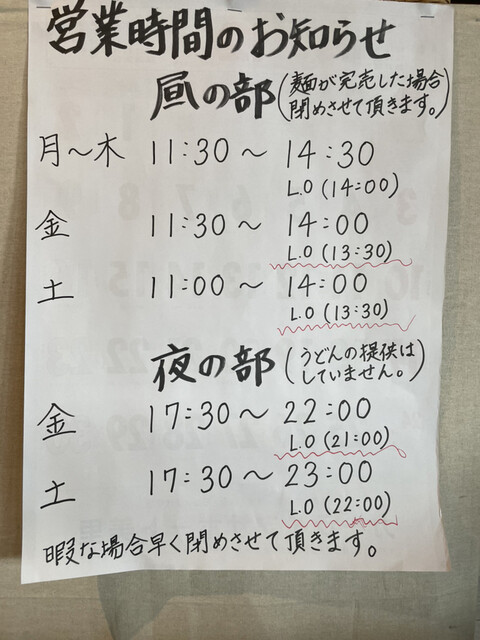 営業時間のお知らせ
昼の部 (麺が完売した場合
閉めさせて頂きます。)
月〜木 11:30〜14:30
L.O (14:00)
金 11:30〜14:00
L.O (13:30)
土 11:00〜14:00
L.O (13:30)
夜の部 (うどんの提供は
していません。)
金 17:30〜22:00
L.O (21:00)
土 17:30〜23:00
L.O (22:00)
暇な場合早く閉めさせて頂きます。